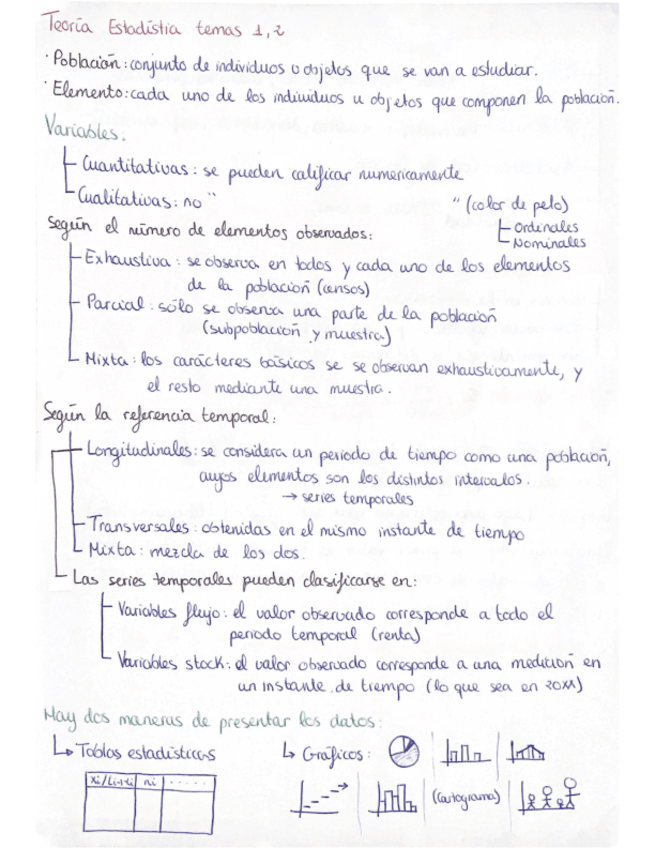 Teoría Estadística temas 1,2
· Población: conjunto de individuos u objetos que se van a estudiar.
· Elemento: cada uno de los individuos u objetos que componen la población.
Variables:
Cuantitativas: se pueden calificar numericamente
Cualitativas: no " " (color de pelo)
Ordinales
Nominales
Según el número de elementos observados:
Exhaustiva: se observa en todos y cada uno de los elementos
de la población (censos)
Parcial: sólo se observa una parte de la población
(subpoblación y muestra)
Mixta: los carácteres básicos se se observan exhaustivamente, y
el resto mediante una muestra.
Según la referencia temporal:
Longitudinales: se considera un periodo de tiempo como una población,
cuyos elementos son los distintos intervalos.
→ series temporales
Transversales: obtenidas en el mismo instante de tiempo
Mixta: mezcla de los dos.
Las series temporales pueden clasificarse en:
Variables flujo: el valor observado corresponde a todo el
periodo temporal (renta)
Variables stock: el valor observado corresponde a una medición en
un instante de tiempo (lo que sea en 20XX)
Hay dos maneras de presentar los datos:
↳ Tablas estadísticas ↳ Gráficos:
xi/Li-1-Li ni ......
(Cartograma)